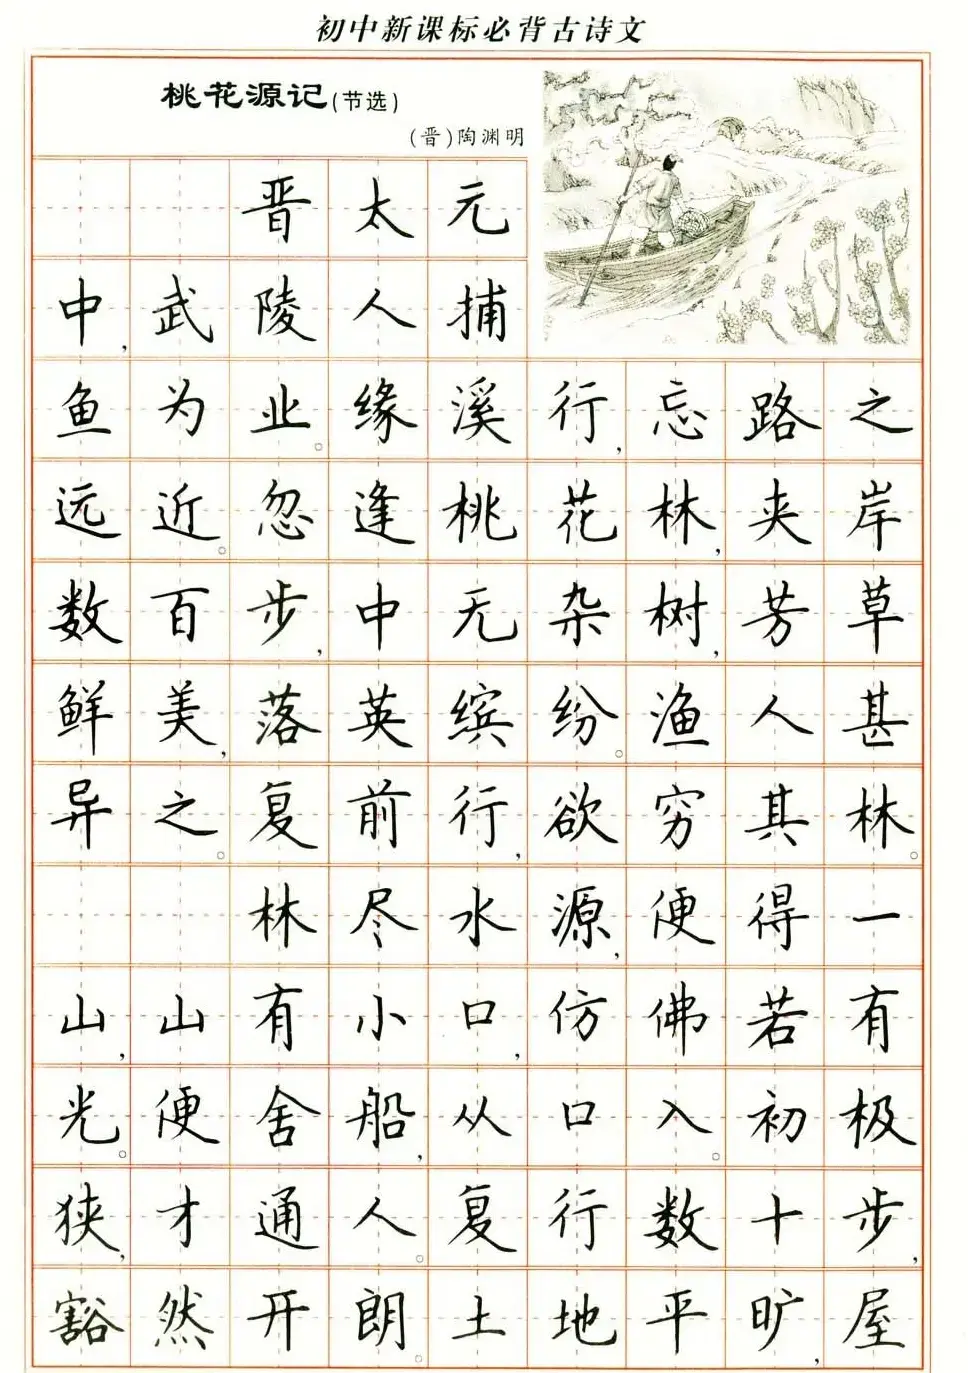 初中新课标必背古诗文
桃花源记(节选)
(晋)陶渊明
晋太元
中,武陵人捕
鱼为业。缘溪行,忘路之
远近。忽逢桃花林,夹岸
数百步,中无杂树,芳草
鲜美,落英缤纷。渔人甚
异之。复前行,欲穷其林。
林尽水源,便得一
山,山有小口,仿佛若有
光。便舍船,从口入。初极
狭,才通人。复行数十步,
豁然开朗。土地平旷,屋